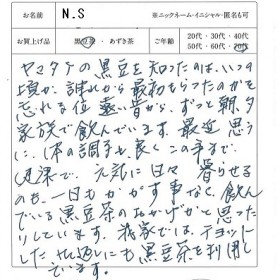 お名前 N.S ※ニックネーム・イニシャル・匿名も可
お買上げ品 黒豆茶・あずき茶 ご年齢 20代・30代・40代
50代・60代・70代
ヤマタケの黒豆を知ったのは、いつの
頃か、誰れから最初もらったのかを
忘れる位、昔から、ずっと朝夕
家族で飲んでいます。最近思う
に、体の調子も良くこの年まで、
健康で、元気に日々暮らせる
のも、一日もかかす事なく、飲ん
でいる黒豆茶のおかげかと思った
りしています。我家では、チョット
した にも黒豆茶を利用し
ています。